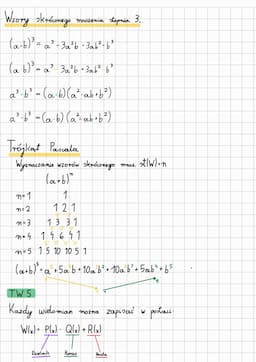 Wzory skróconego mnożenia stopnia 3.
(a+b)³ = a³+3a²b+3ab²+b³
(a-b)³ = a³-3a²b+3ab²-b³
a³+b³ = (a+b)(a²-ab+b²)
a³-b³ = (a-b)(a²+ab+b²)
Trójkąt Pascala
Wyznaczanie wzorów skróconego mnoż. st(W)=n
(a+b)ⁿ
n=1 1
n=2 1 2 1
n=3 1 3 3 1
n=4 1 4 6 4 1
n=5 1 5 10 10 5 1
(a+b)⁵ = a⁵+5a⁴b+10a³b²+10a²b³+5ab⁴+b⁵
TW 5
Każdy wielomian można zapisać w postaci
W(x) = P(x) · Q(x) + R(x)
Dzielnik Iloraz Reszta